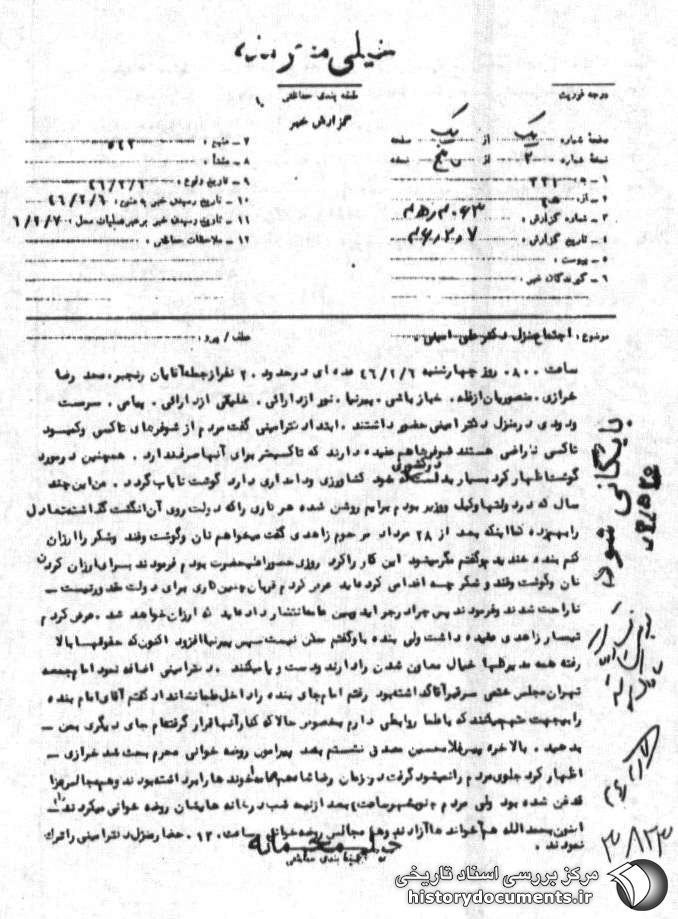 خیلی محرمانه
درجه فوریت
طبقه بندی حفاظتی
گزارش خبر
صفحه شماره یک از یک صفحه
نسخه شماره ۲ از پنج نسخه
۱ - به : ۳۲۱
۲ - از :
۳ - شماره گزارش :
۴ - تاریخ گزارش : ۴۶٫۲٫۷
۵ - پیوست :
۶ - گیرندگان خبر :
۷ - منبع : ۵۴۳
۸ - منشأ :
۹ - تاریخ وقوع : ۴۶/۲/۶
۱۰ - تاریخ رسیدن خبر به منبع : ۴۶/۲/۶
۱۱ - تاریخ رسیدن خبر به رهبر عملیات محل : ۶/۲/۷
۱۲ - ملاحظات حفاظتی :
موضوع : اجتماع منزل دکتر علی امینی عطف / پیرو :
ساعت ۸۰۰ روز چهارشنبه ۴۶/۲/۶ عده ای در حدود ۲۰ نفر از جمله آقایان رنجبر، محمد رضا
خرازی ، منصوریان از قله ، خبازباشی ، پیرنیا ، نور از دارائی ، خلیقی از دارائی ، پیامی ، سرمست
ودودی در منزل دکتر امینی حضور داشتند . ابتدا دکتر امینی گفت مردم از شوفرهای تاکسی و کمبود
تاکسی ناراضی هستند شوفرها هم عقیده دارند که تاکسیمتر برای آنها صرف ندارد . همچنین در مورد
گوشت اظهار کرد بسیار بد است که در کشوری خود کشاورزی و دامداری دارد گوشت نایاب گردد . من این چند
سال که در دولتها وکیل و وزیر بودم برایم روشن شده هر کاری را که دولت روی آن انگشت گذاشته تعادل
را بهم زده کما اینکه بعد از ۲۸ مرداد مرحوم زاهدی گفت میخواهم نان و گوشت و قند و شکر را ارزان
کنم بنده خندیدم و گفتم مگر میشود این کار را کرد روزی حضور اعلیحضرت بودم فرمودند برای ارزان کردن
نان و گوشت و قند و شکر چه اقدامی کرده اید عرض کردم قربان چنین کاری برای دولت مقدور نیست -
ناراحت شدند و فرمودند پس چرا در جراید بهمن ماه انتشار داده اید که ارزان خواهد شد . عرض کردم
تیمسار زاهدی عقیده داشت ولی بنده باو گفتم ممکن نیست سپس پیرنیا افزود اکنون که حقوقها بالا
رفته همه مدیر کلها خیال معاون شدن را دارند و دست و پا میکنند . دکتر امینی اضافه نمود امام جمعه
تهران مجلس ختمی سر قبر آقا گذاشته بود رفتم امام جای بنده را داخل علما نشان داد گفتم آقای امام بنده
را بیجهت متهم میکنند که با علما روابطی دارم بخصوص حالا که کنار آنها قرار گرفته ام جای دیگری بمن -
بدهید . بالاخره پیش غلامحسین مصدق نشستم بعد پیرامون روضه خوانی محرم بحث شد خرازی -
اظهار کرد جلوی مردم را نمیشود گرفت در زمان رضا شاه هم عمامه آخوند ها را برداشته بودند و هم مجالس عزا
قدغن شده بود ولی مردم جنوب شهر ساعت ۱ بعد از نیمه شب در خانه هایشان روضه خوانی میکردند -
اکنون بحمدالله هم آخوند ها آزادند و هم مجالس روضه خوانی . ساعت ۱۲۰۰ حضار منزل دکتر امینی را ترک
نمودند .
خیلی محرمانه
طبقه بندی حفاظتی
بایگانی شود
۳۸۲۳
مرکز بررسی اسناد تاریخی
historydocuments.ir